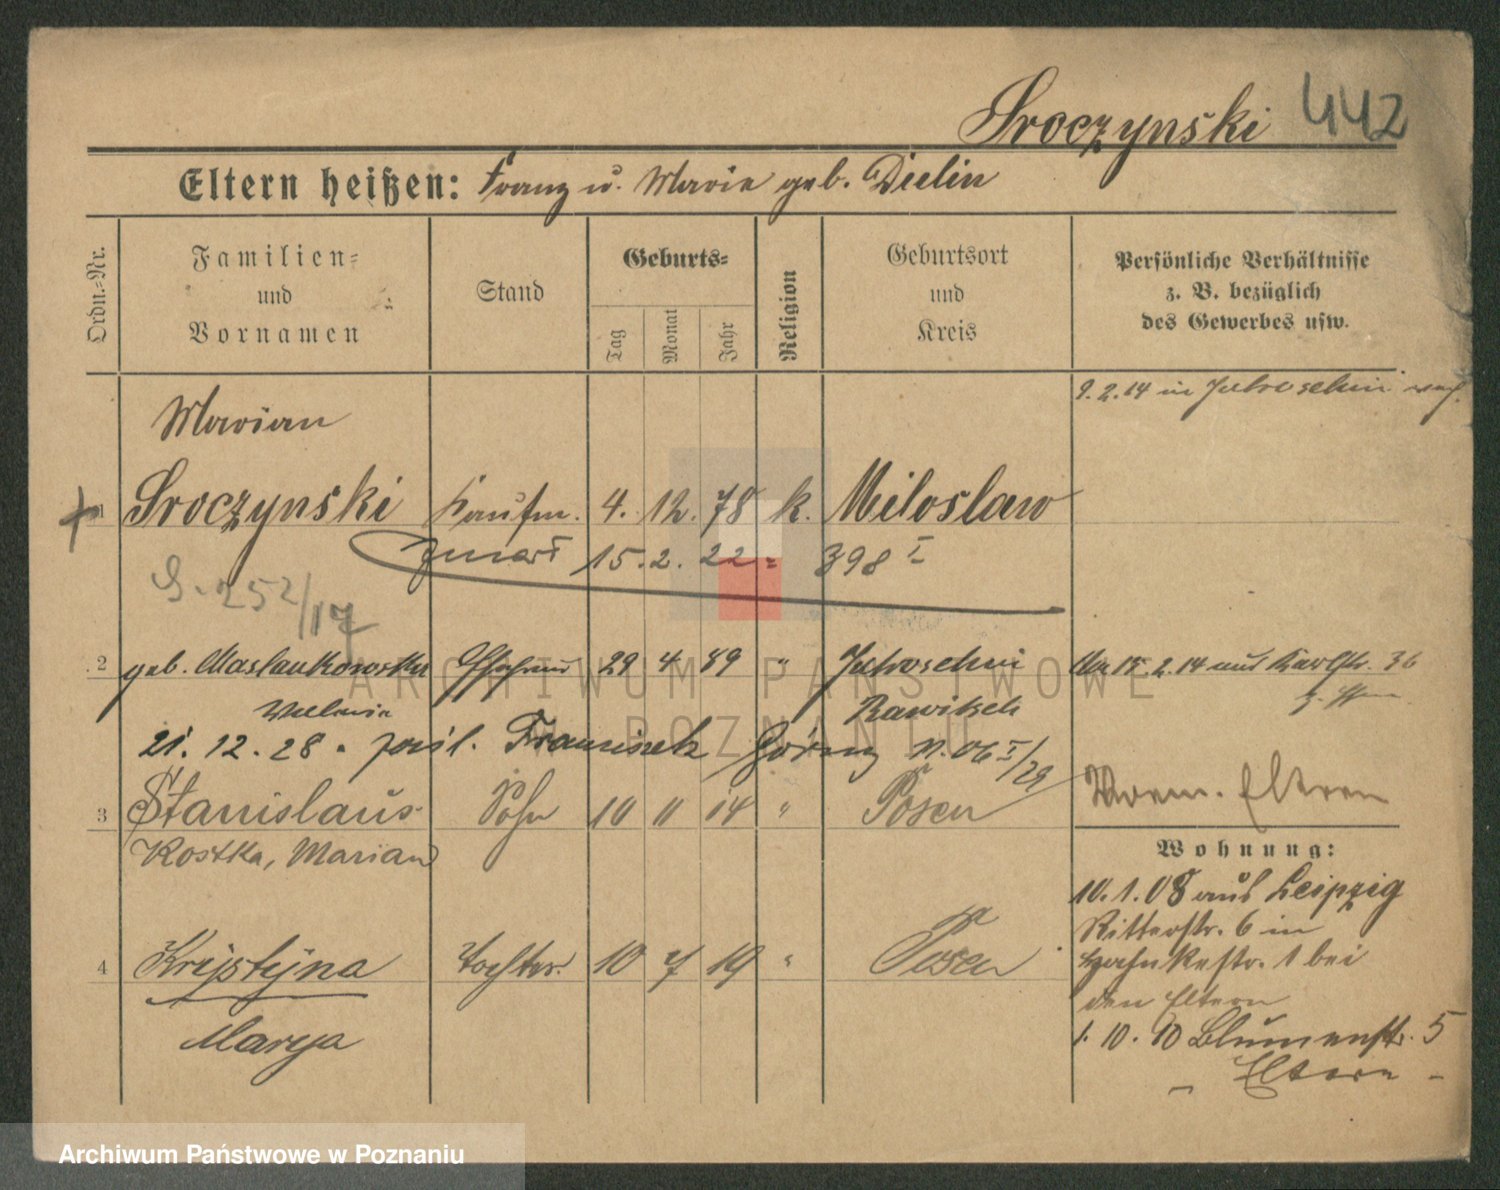 Sroczynski 442
Eltern heißen: Franz u. Marie geb. Dielin
Ordn.-Nr.
Familien-
und
Vornamen
Stand
Geburts-
Tag
Monat
Jahr
Religion
Geburtsort
und
Kreis
Persönliche Verhältnisse
z. B. bezüglich
des Gewerbes usw.
9.2.14 in Jutroschin
Marian
1 Sroczynski Kaufm. 4. 12. 78 k. Miloslaw
zmarł 15.2.22 398 I
S. 252/17
2 geb. Maslankowska Ehefrau 29 4 89 " Jutroschin
15.2.14 aus 36
Rawitsch
21.12.28. Franciszek Górny N. 06 I/29
3 Stanislaus Sohn 10 11 14 " Posen
Kostka, Marian
Eltern
Wohnung:
10.1.08 aus Leipzig
Ritterstr. 6 in
str. 1 bei
den Eltern
4 Krystyna Tochter 10 7 19 " Posen
Marya
1. 10. 10 Blumenstr. 5
Eltern
ARCHIWUM PAŃSTWOWE
W POZNANIU
Archiwum Państwowe w Poznaniu